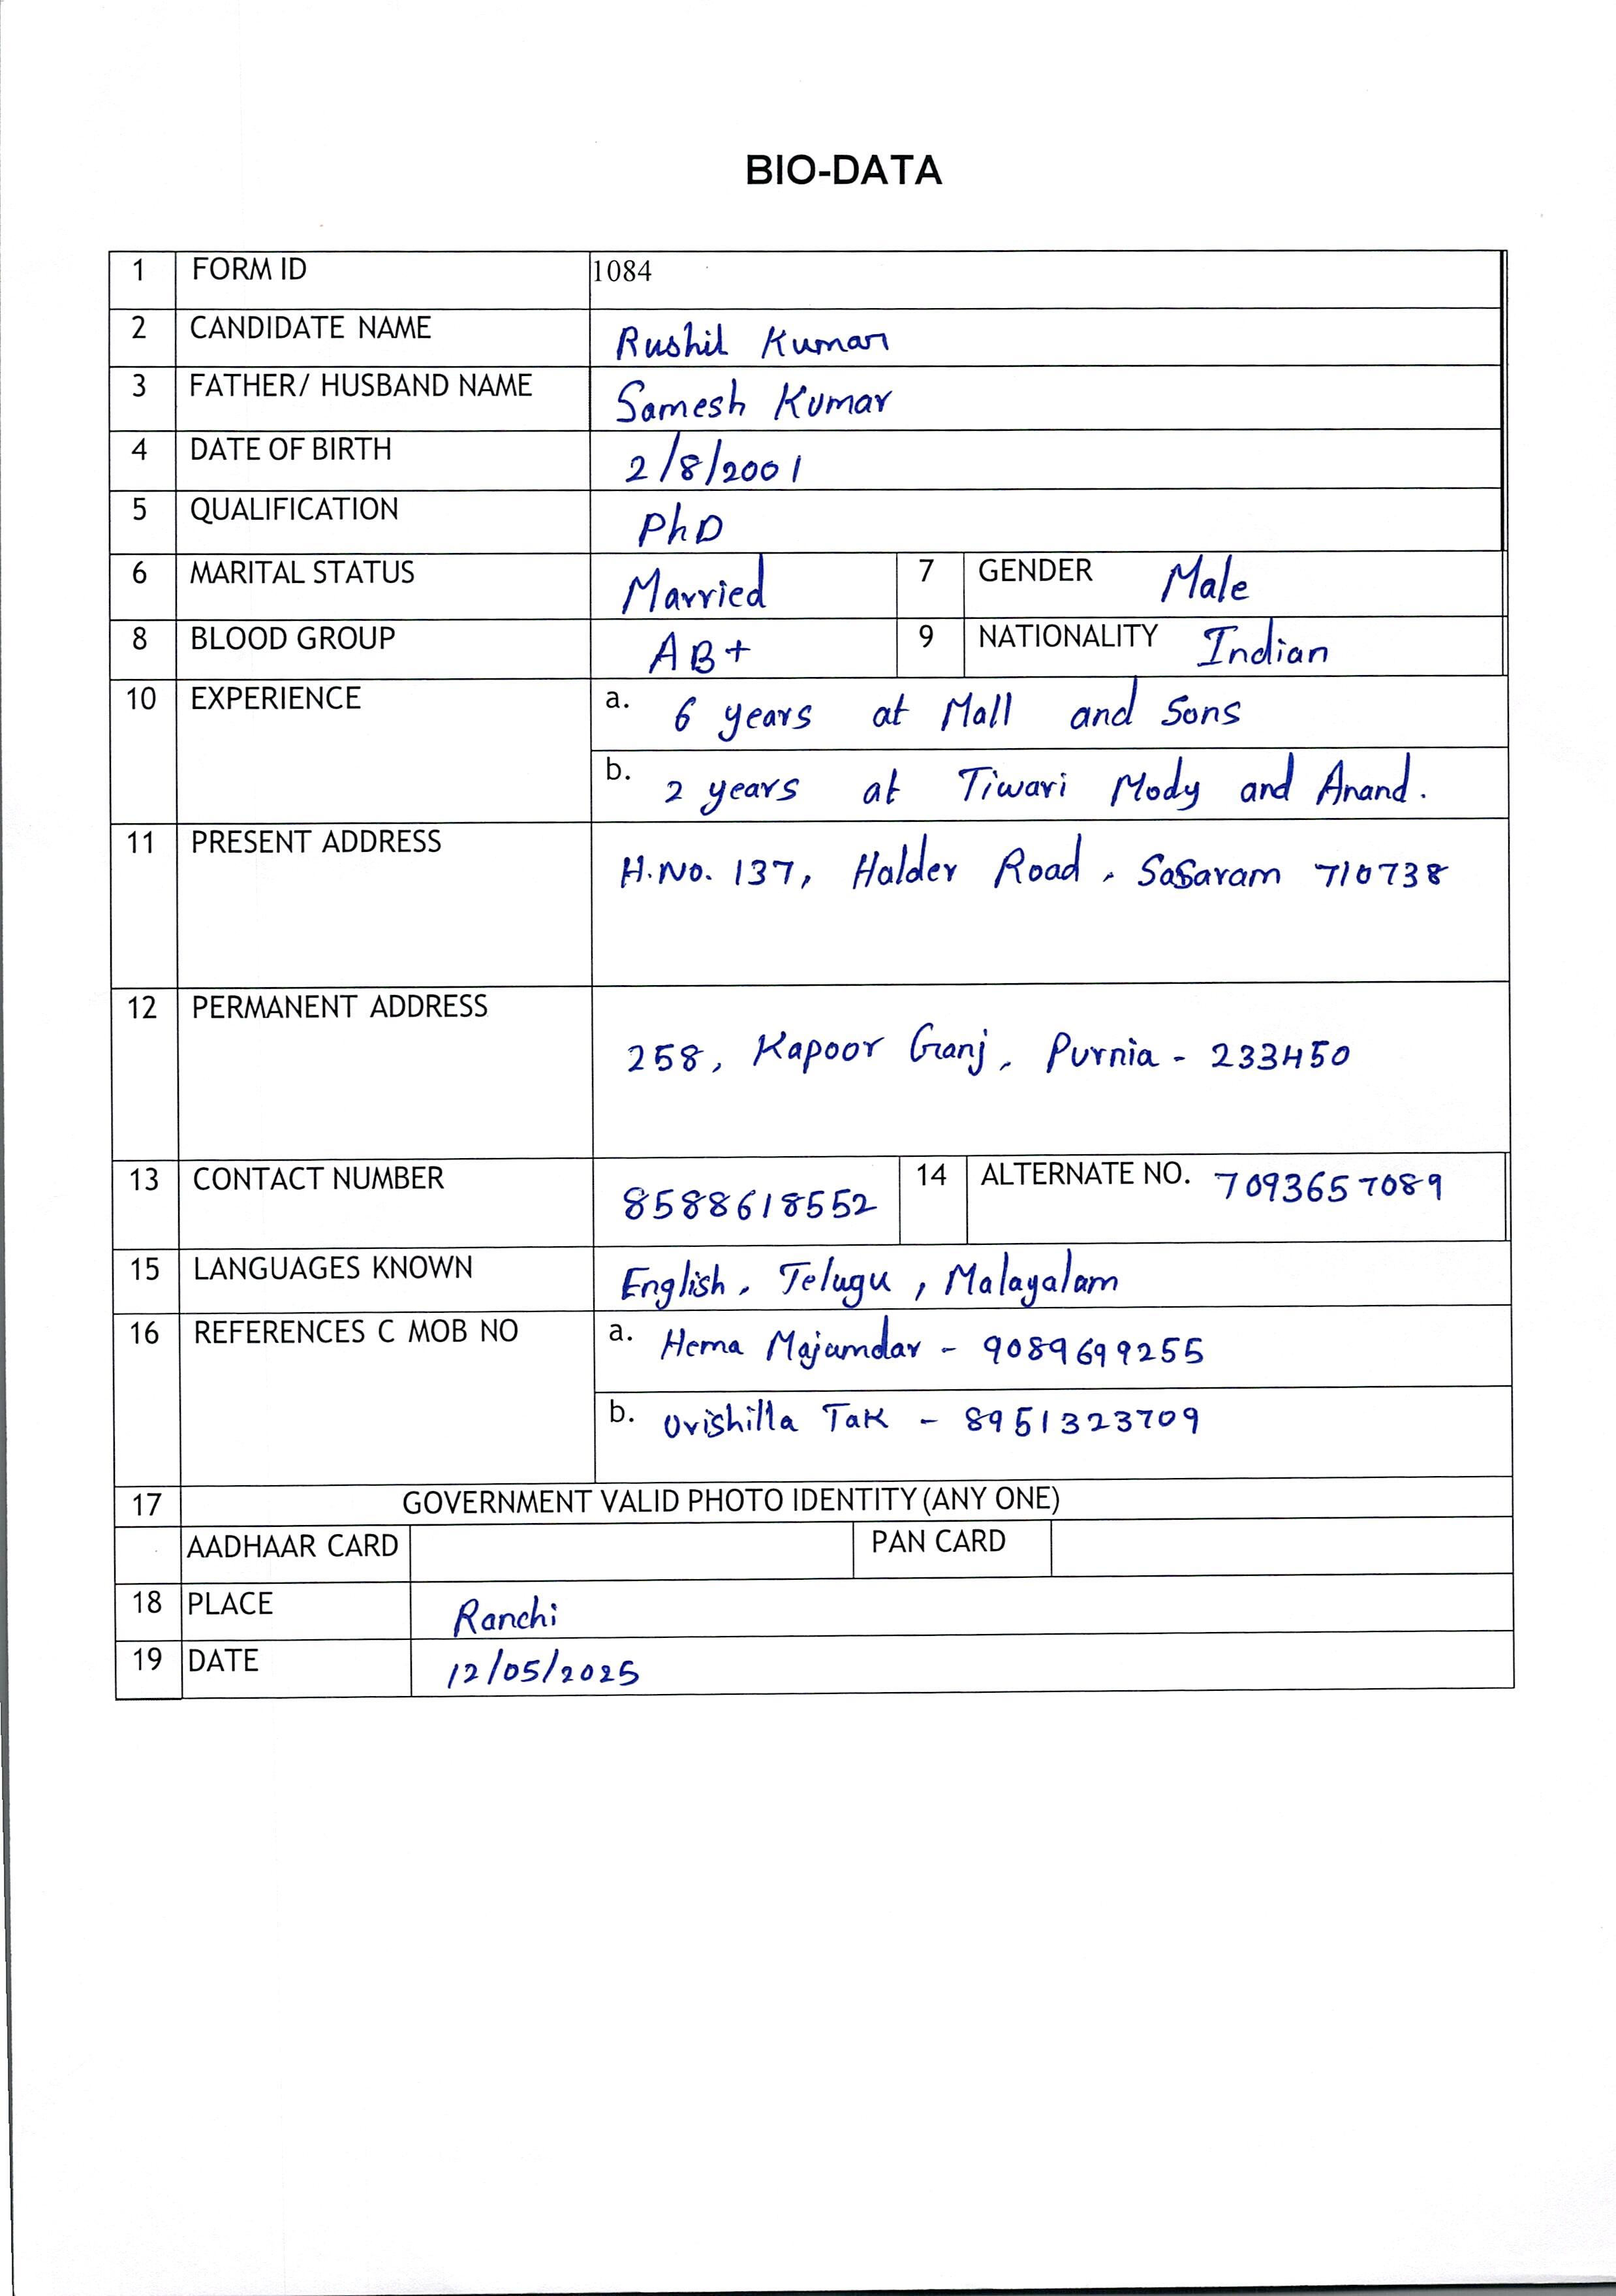 BIO-DATA
1 FORM ID 1084
2 CANDIDATE NAME Rushil Kumar
3 FATHER/ HUSBAND NAME Samesh Kumar
4 DATE OF BIRTH 2/8/2001
5 QUALIFICATION PhD
6 MARITAL STATUS Married 7 GENDER Male
8 BLOOD GROUP AB+ 9 NATIONALITY Indian
10 EXPERIENCE a. 6 years at Mall and Sons
b. 2 years at Tiwari Mody and Anand.
11 PRESENT ADDRESS H.No. 137, Halder Road, Sasaram 710738
12 PERMANENT ADDRESS 258, Kapoor Ganj, Purnia - 233450
13 CONTACT NUMBER 8588618552 14 ALTERNATE NO. 7093657089
15 LANGUAGES KNOWN English, Telugu, Malayalam
16 REFERENCES C MOB NO a. Hema Majumdar - 9089699255
b. Urishilla Tak - 8951323709
17 GOVERNMENT VALID PHOTO IDENTITY (ANY ONE)
AADHAAR CARD PAN CARD
18 PLACE Ranchi
19 DATE 12/05/2025